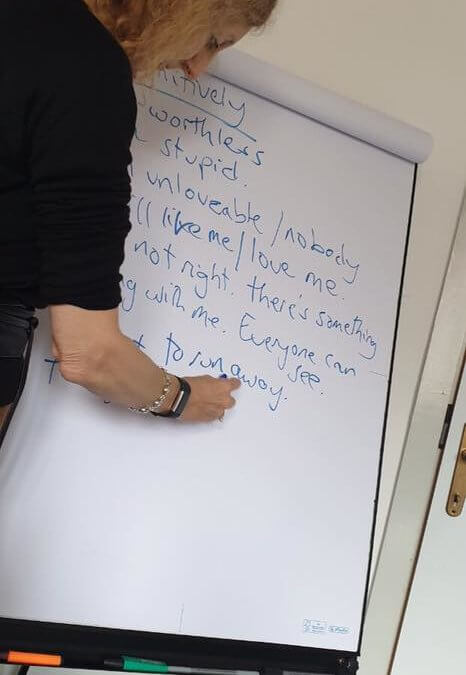 nitively
worthless
stupid.
unloveable / nobody
'll like me / love me.
not right. there's something
g with me. Everyone can
see.
t to run away.